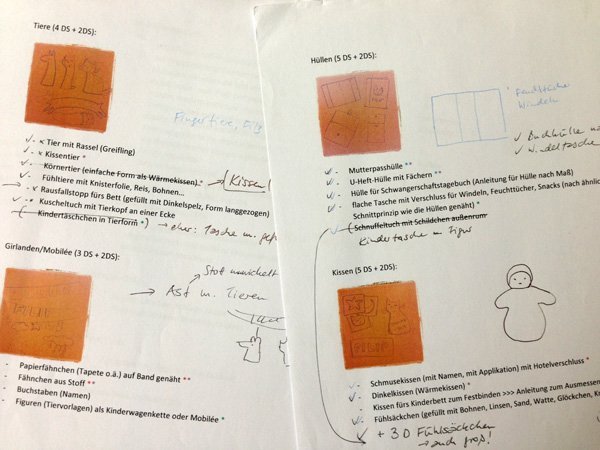 Tiere (4 DS + 2DS):
Fingertiere,
- Tier mit Rassel (Greifling)
- Kissentier *
- Körnertier (einfache Form als Wärmekissen) → Kissen!
- Fühltiere mit Knisterfolie, Reis, Bohnen...
- Rausfallstopp fürs Bett (gefüllt mit Dinkelspelz, Form langgezogen) *
- Kuscheltuch mit Tierkopf an einer Ecke
- (Kindertäschchen in Tierform *) → eher: Tasche m.
Girlanden/Mobilée (3 DS + 2DS):
Stoff umwickelt
→ Ast m. Tieren
- Papierfähnchen (Tapete o.ä.) auf Band genäht **
- Fähnchen aus Stoff **
- Buchstaben (Namen)
- Figuren (Tiervorlagen) als Kinderwagenkette oder Mobilée *
Hüllen (5 DS + 2DS):
Feuchttücher
Windeln
✓ Buchhülle
Windeltasche
- Mutterpasshülle **
- U-Heft-Hülle mit Fächern **
- Hülle für Schwangerschaftstagebuch (Anleitung für Hülle nach Maß)
- flache Tasche mit Verschluss für Windeln, Feuchttücher, Snacks (nach ähnlic
Schnittprinzip wie die Hüllen genäht) *
- Schnuffeltuch mit Schildchen außenrum
Kindertasche m.
Kissen (5 DS + 2DS):
- Schmusekissen (mit Namen, mit Applikation) mit Hotelverschluss *
- Dinkelkissen (Wärmekissen) *
- Kissen fürs Kinderbett zum Festbinden >>> Anleitung zum Ausmessen
- Fühlsäckchen (gefüllt mit Bohnen, Linsen, Sand, Watte, Glöckchen, Kn
+ 3D Fühlsäckchen
→ auch groß!